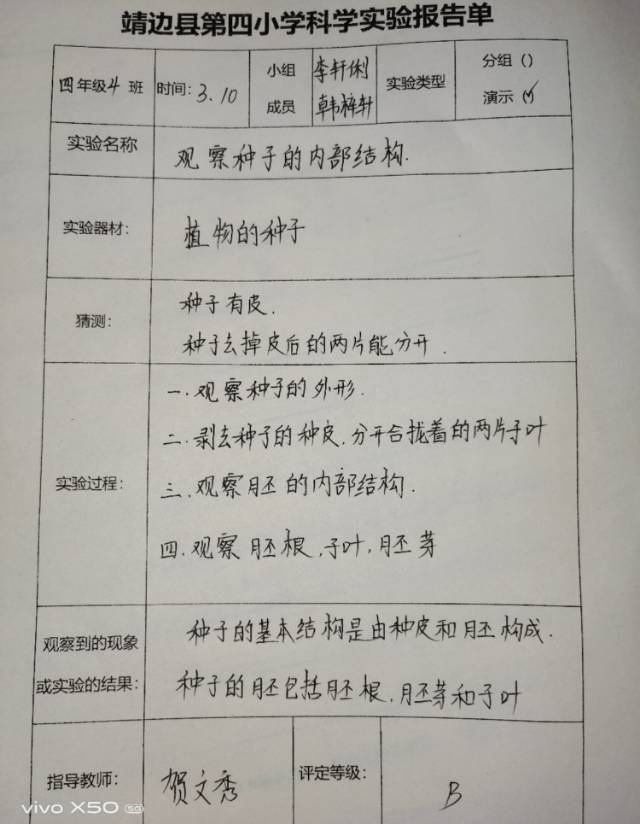 靖边县第四小学科学实验报告单
四年级4班 时间:3.10 小组成员 李轩俐 韩梓轩 实验类型 分组() 演示(✓)
实验名称 观察种子的内部结构.
实验器材: 植物的种子
猜测: 种子有皮.
种子去掉皮后的两片能分开.
实验过程: 一.观察种子的外形.
二.剥去种子的种皮.分开合拢着的两片子叶
三.观察胚的内部结构.
四.观察胚根,子叶,胚芽
观察到的现象或实验的结果: 种子的基本结构是由种皮和胚构成.
种子的胚包括胚根.胚芽和子叶
指导教师: 贺文秀 评定等级: B
vivo X50 5G